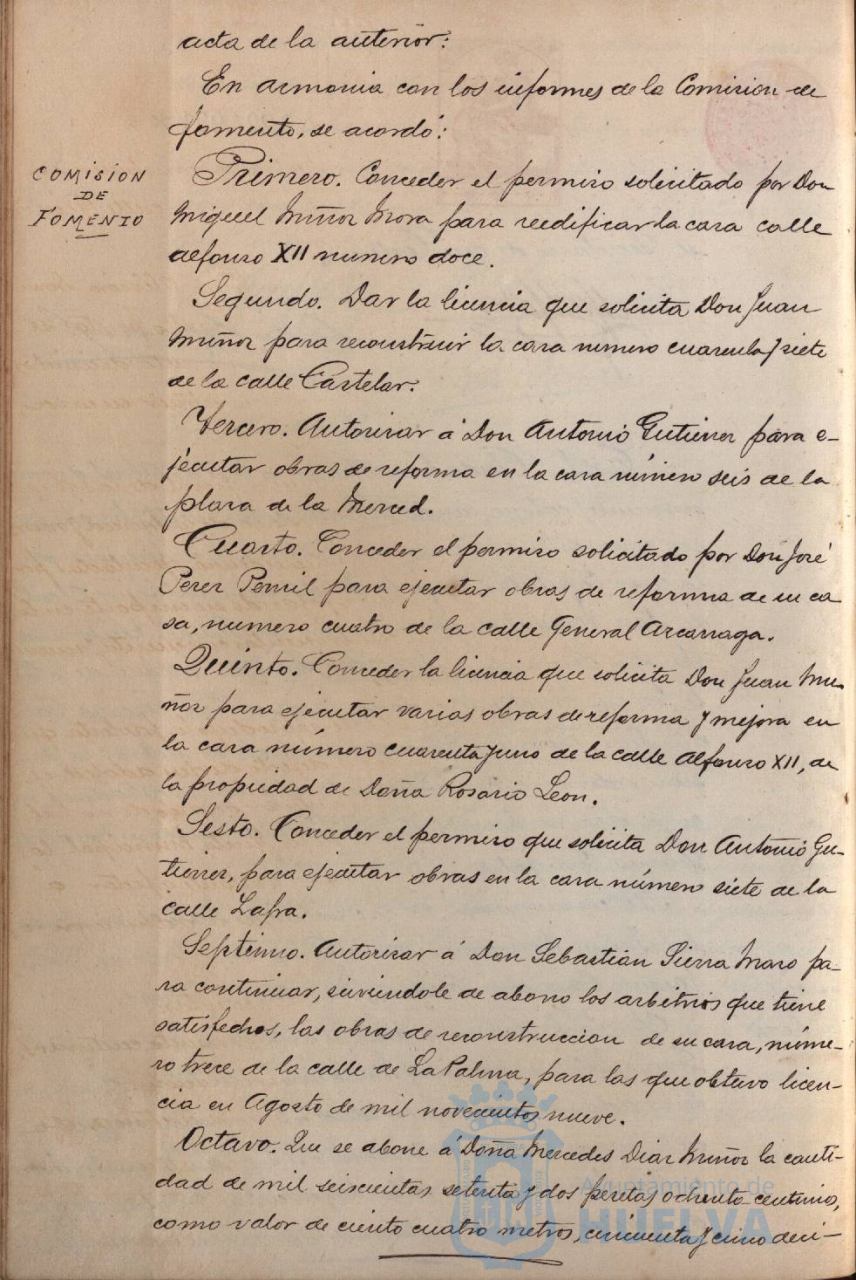 acta de la anterior:
En armonia con los informes de la Comision de
fomento, se acordó:
COMISION
DE
FOMENTO
Primero. Conceder el permiso solicitado por Don
Miguel Muñoz Mora para reedificar la casa calle
Alfonso XII numero doce.
Segundo. Dar la licencia que solicita Don Juan
Muñoz para reconstruir la casa numero cuarenta y siete
de la calle Castelar.
Tercero. Autorizar á Don Antonio Gutierrez para e-
jecutar obras de reforma en la casa número seis de la
plaza de la Merced.
Cuarto. Conceder el permiso solicitado por Don José
Perez Pemil para ejecutar obras de reforma de su ca
sa, numero cuatro de la calle General Azcarraga.
Quinto. Conceder la licencia que solicita Don Juan Mu-
ñoz para ejecutar varias obras de reforma y mejora en
la casa número cuarenta y uno de la calle Alfonso XII, de
la propiedad de Doña Rosario Leon.
Sesto. Conceder el permiso que solicita Don Antonio Gu-
tierrez, para ejecutar obras en la casa número siete de la
calle Zafra.
Septimo. Autorizar á Don Sebastián Sierra Mazo pa-
ra continuar, sirviendole de abono los arbitrios que tiene
satisfechos, las obras de reconstruccion de su casa, núme-
ro trece de la calle de La Palma, para las que obtuvo licen-
cia en Agosto de mil novecientos nueve.
Octavo. Que se abone á Doña Mercedes Diaz Muñoz la canti-
dad de mil seiscientas setenta y dos pesetas ochenta centimos,
como valor de ciento cuatro metros, cincuenta y cinco deci-
Ayuntamiento de
HUELVA